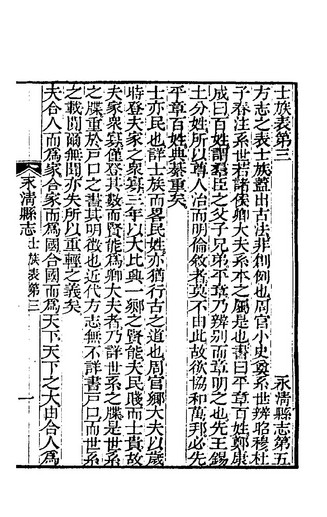 士族表第三 永清縣志第五
方志之表士族蓋出古法非創例也周官小史奠系世辨昭穆杜
子春注系世若諸侯卿大夫系本之屬是也書曰平章百姓鄭康
成曰百姓謂羣臣之父子兄弟平章乃辨别而章明之也先王錫
土分姓所以尊人治而明倫敘者莫不由此故欲協和萬邦必先
平章百姓典綦重矣
士亦民也詳士族而畧民姓亦猶行古之道也周官鄉大夫以歲
時登夫家之衆寡三年以大比興一鄉之賢能夫民賤而士貴故
夫家衆寡僅登其數而賢能爲卿大夫者乃詳世系之牒是世系
之牒重於戸口之書其明徵也近代方志無不詳書戸口而世系
之載闃爾無聞亦失所以重輕之義矣
夫合人而爲家合家而爲國合國而爲天下天下之大由合人爲
永清縣志 士族表第三 一